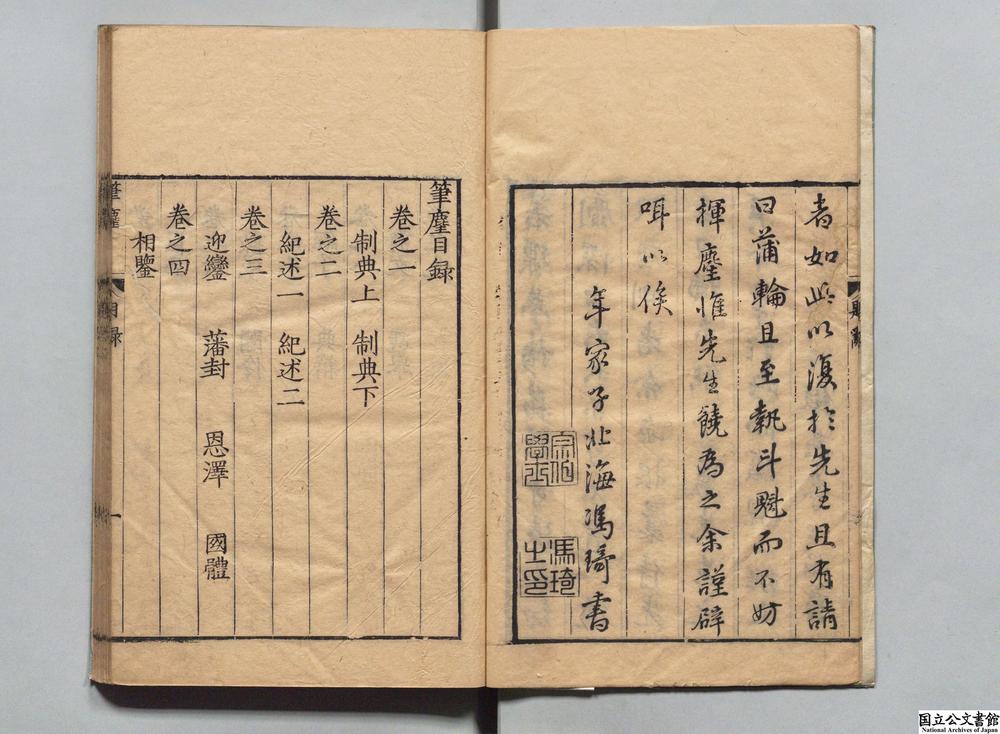 者如此以復於先生且有請
曰蒲輪且至執斗魁而不妨
揮麈惟先生饒為之余謹辟
咡以俟
年家子北海馮琦書
宗伯學士
馮琦之印
筆麈目録
卷之一
制典上 制典下
卷之二
紀述一 紀述二
卷之三
迎鑾 藩封 恩澤 國體
卷之四
相鑒
筆麈
目録
一
国立公文書館
National Archives of Japan